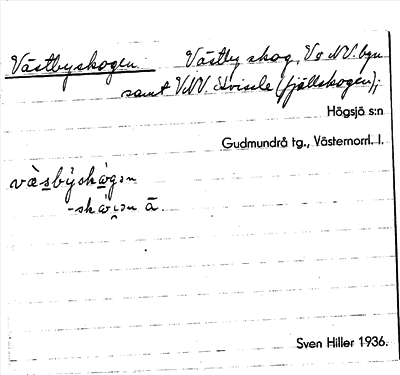 Västbyskogen Västby skog, V o NV. byn
samt VNV. Svisele (fjällskogen);
Högsjö s:n
Gudmundrå tg., Västernorrl. l.
vä̀sbýskó̀gən
-skó̀ɩən ā.
Sven Hiller 1936.